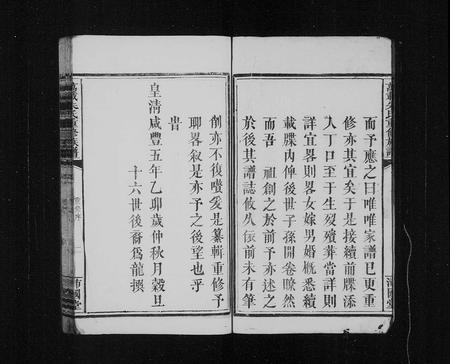 而予應之曰唯唯家譜已更重
修亦其宜矣于是接續前牒添
入丁口至于生烈殯葬當詳則
詳宜畧則畧女嫁男婚概悉續
載牒內俾後世子孫開卷瞭然
而吾 祖創之於前予亦述之
於後其譜誌攸久俟前未有筆
創亦不復嘵爰是纂輯重修予
聊畧叙是亦予之後望也乎
皇清咸豐五年乙卯歲仲秋月穀旦
十六世後裔為龍撰
沛國堂